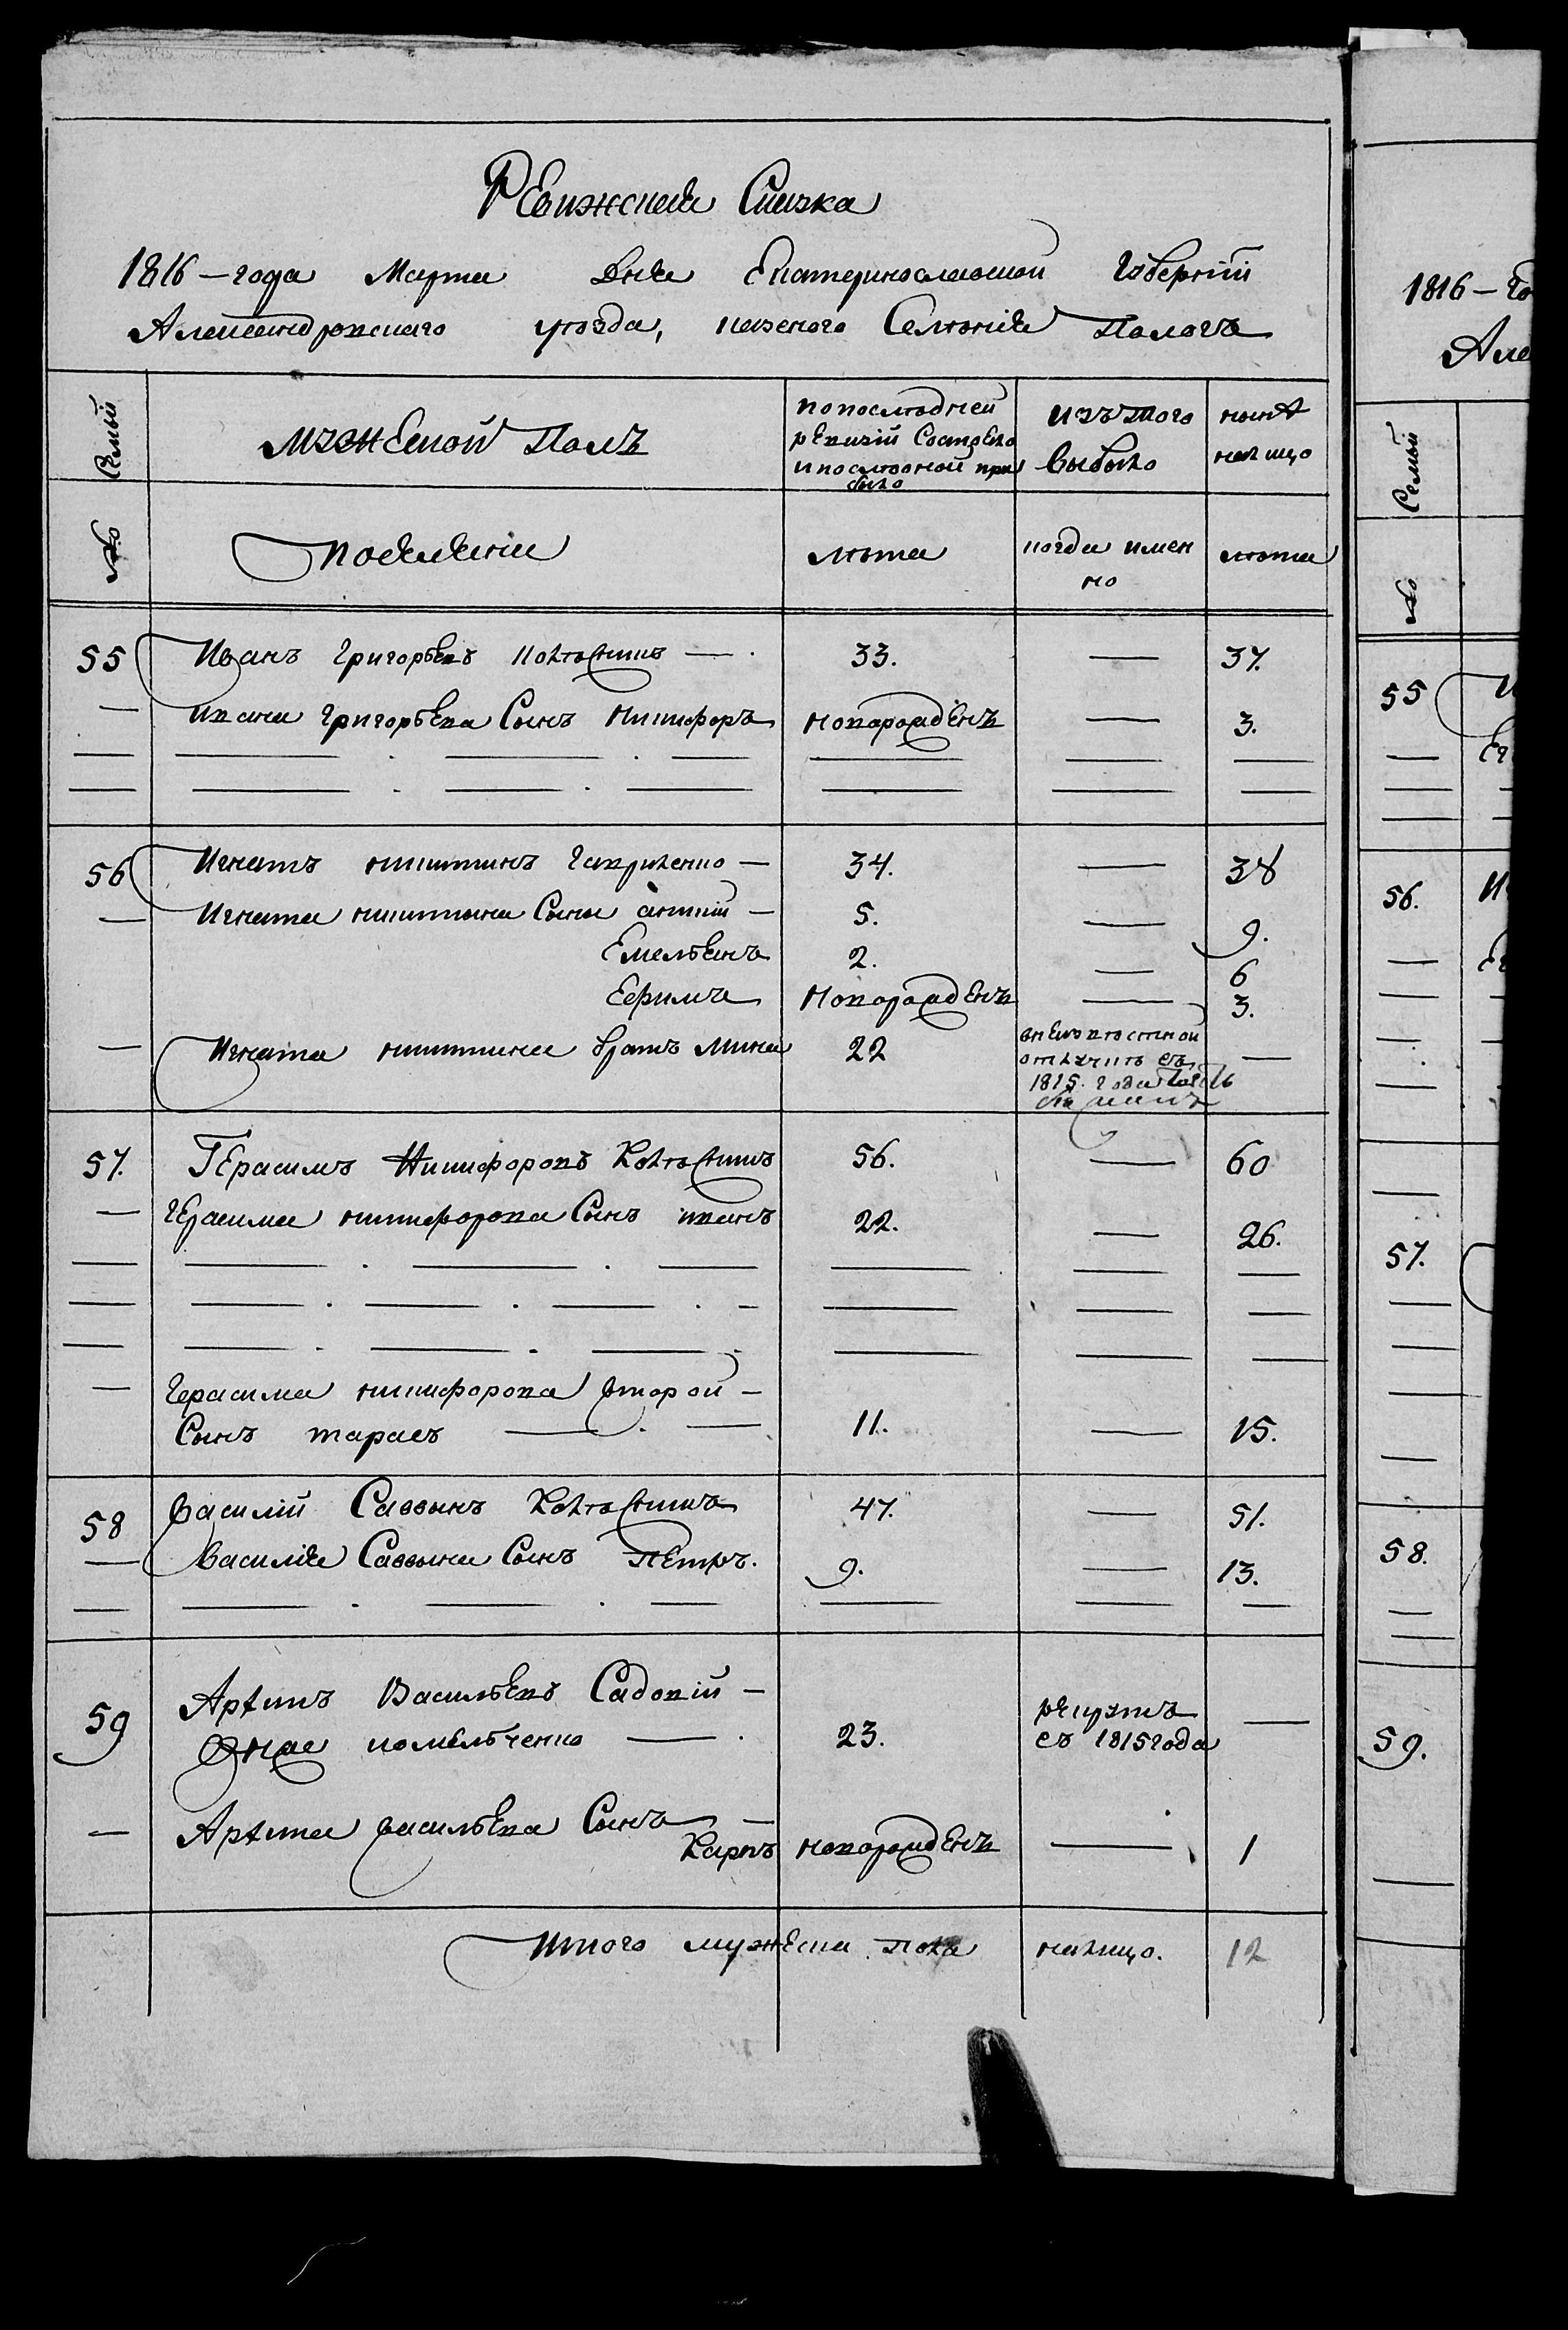 Ревижская Сказка
1816 – года Марта дня Екатеринославской Губерніи
Александровскаго уѣзда, казеного Селѣнія Пологъ
Семьи
мужеской полъ
по послѣдней ревизіи Состоело и послѣ оной прибыло
изъ того выбыло
нынѣ на лицо
№
поселяни
лѣта
когда именно
лѣта
55 Иванъ Григорьевъ — 33. — 37.
— ивана григорьева Сынъ никифоръ новорожденъ — 3.
56 Игнатъ никитинъ гавриленко — 34. — 38
— Игната никитина Сыны антипій — 5. — 9.
Емельянъ 2. — 6
Ефимъ новорожденъ — 3.
— Игната никитина братъ мина 22 —
1815. года
57. Герасимъ Никифоровъ 56. — 60
— герасима никифорова Сынъ иванъ 22. — 26.
— герасима никифорова второй —
Сынъ тарасъ — 11. — 15.
58 василій Саввинъ 47. — 51.
— василия Саввина Сынъ петръ. 9. — 13.
59 Артемъ Васильевъ Садовій —
онже ковальченко — 23. рекрутъ съ 1815 года —
— Артема васильева Сынъ —
Карпъ новорожденъ — 1
Итого мужеска пола налицо. 12
1816 – го
Але
Семьи
№
55
56.
57.
58.
59.